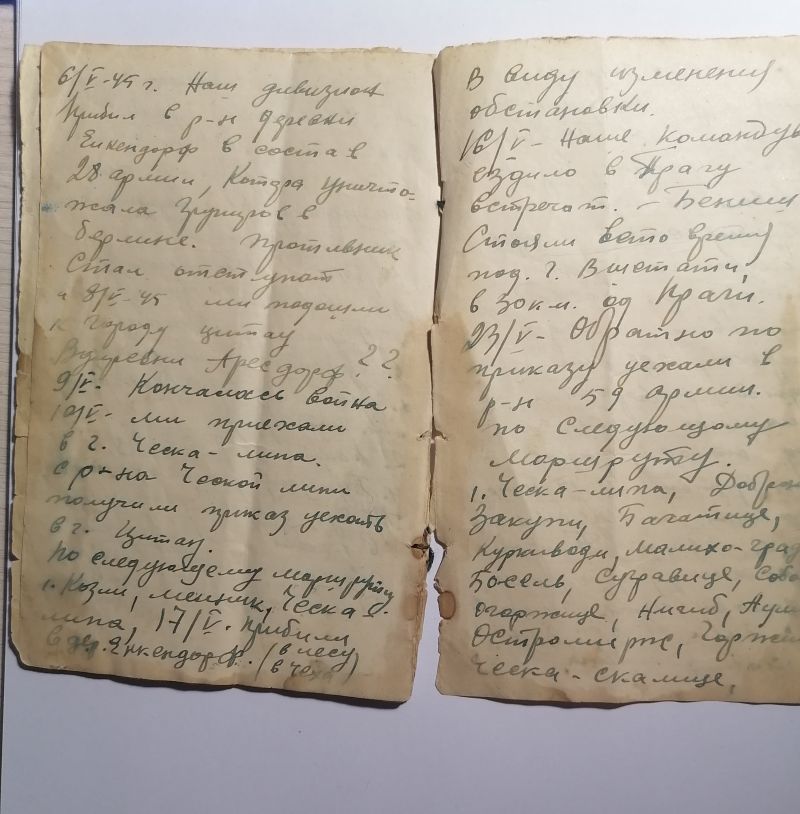 6/V-45 г. Наш дивизион
прибил в р-н деревни
Енкендорф в состав
28 армии, Котора уничто-
жала Группиров в
берлине. Протывник
Стал отступат
и 8/V-45 ми подошли
к городу цитау
Вдеревни Аресдорф ??
9/V- Кончалась война
10/V- ми приехали
в г. Ческа-липа.
с р-на Ческой липи
получили приказ уехать
в г. Цитау.
По следующему маршруту
1. Козли, мешник, Ческа-
липа, 17/V. прибили
в де. Энкендорф. (в лесу)
(в чехо)
В виду изменения
обстановки.
16/V- Наше Командув
ездило в Прагу
встречат. - Бениш
Стояли вето время
под. г. Вшетати,
в 30 км. од Праги.
23/V- Обратно по
приказу уехали в
р-н 59 армии.
по следующому
маршруту.
1. Ческа-липа, Доброн
Закупи, Бачатице,
Куркиводи, малихо-град
Босель, Суправице, Собо
огоржице, Ничиб,
Остромирж, Горжи
Ческа-скалице,